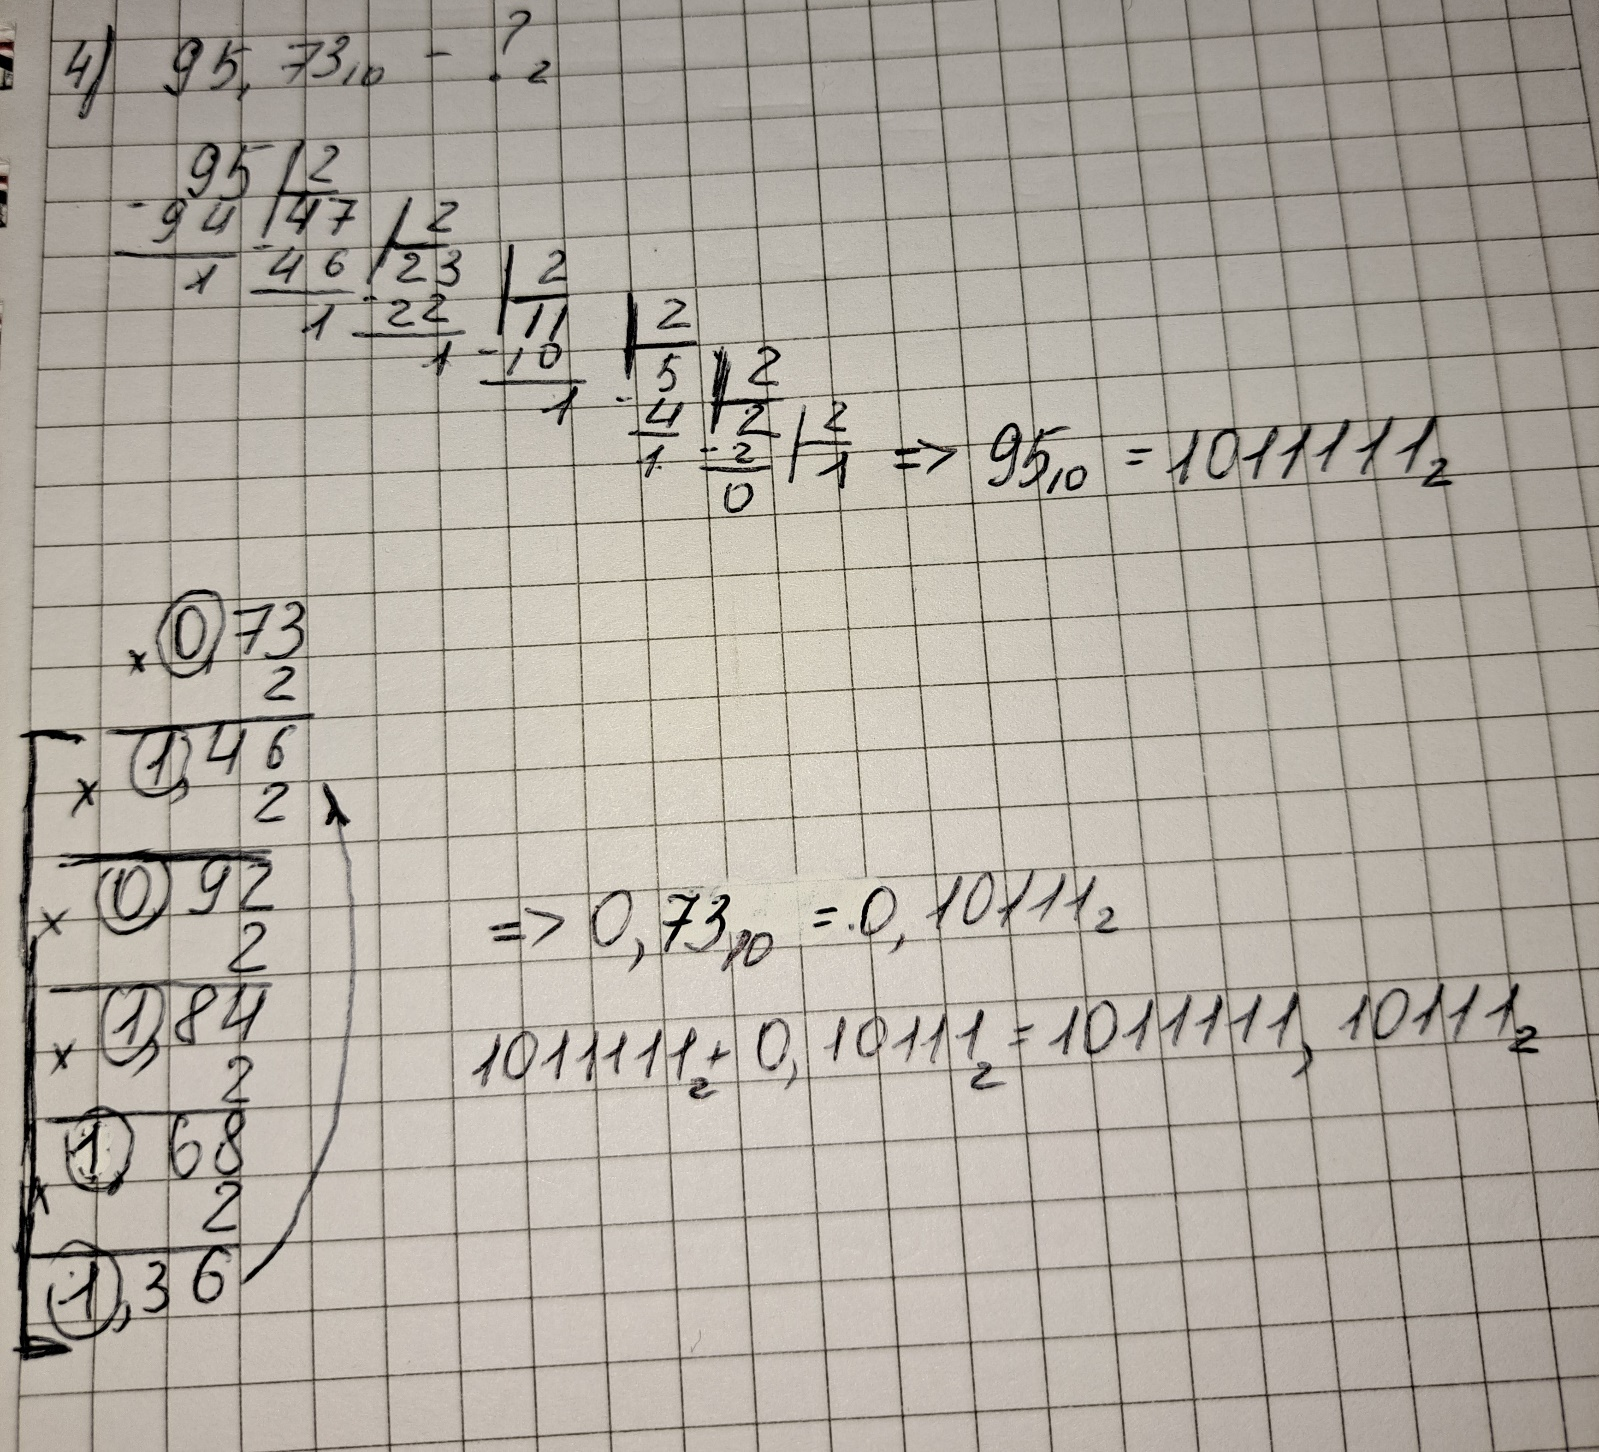 4) 95,73₁₀ - ?₂
95 | 2
- 94 | 47 | 2
1 - 46 | 23 | 2
1 - 22 | 11 | 2
1 - 10 | 5 | 2
1 - 4 | 2 | 2
1 - 2 | 1 => 95₁₀ = 1011111₂
0
0,73
× 2
1,46
× 2
0 92
× 2
1,84
× 2
1, 68
× 2
1,36
=> 0,73₁₀ = 0,10111₂
1011111₂ + 0,10111₂ = 1011111,10111₂